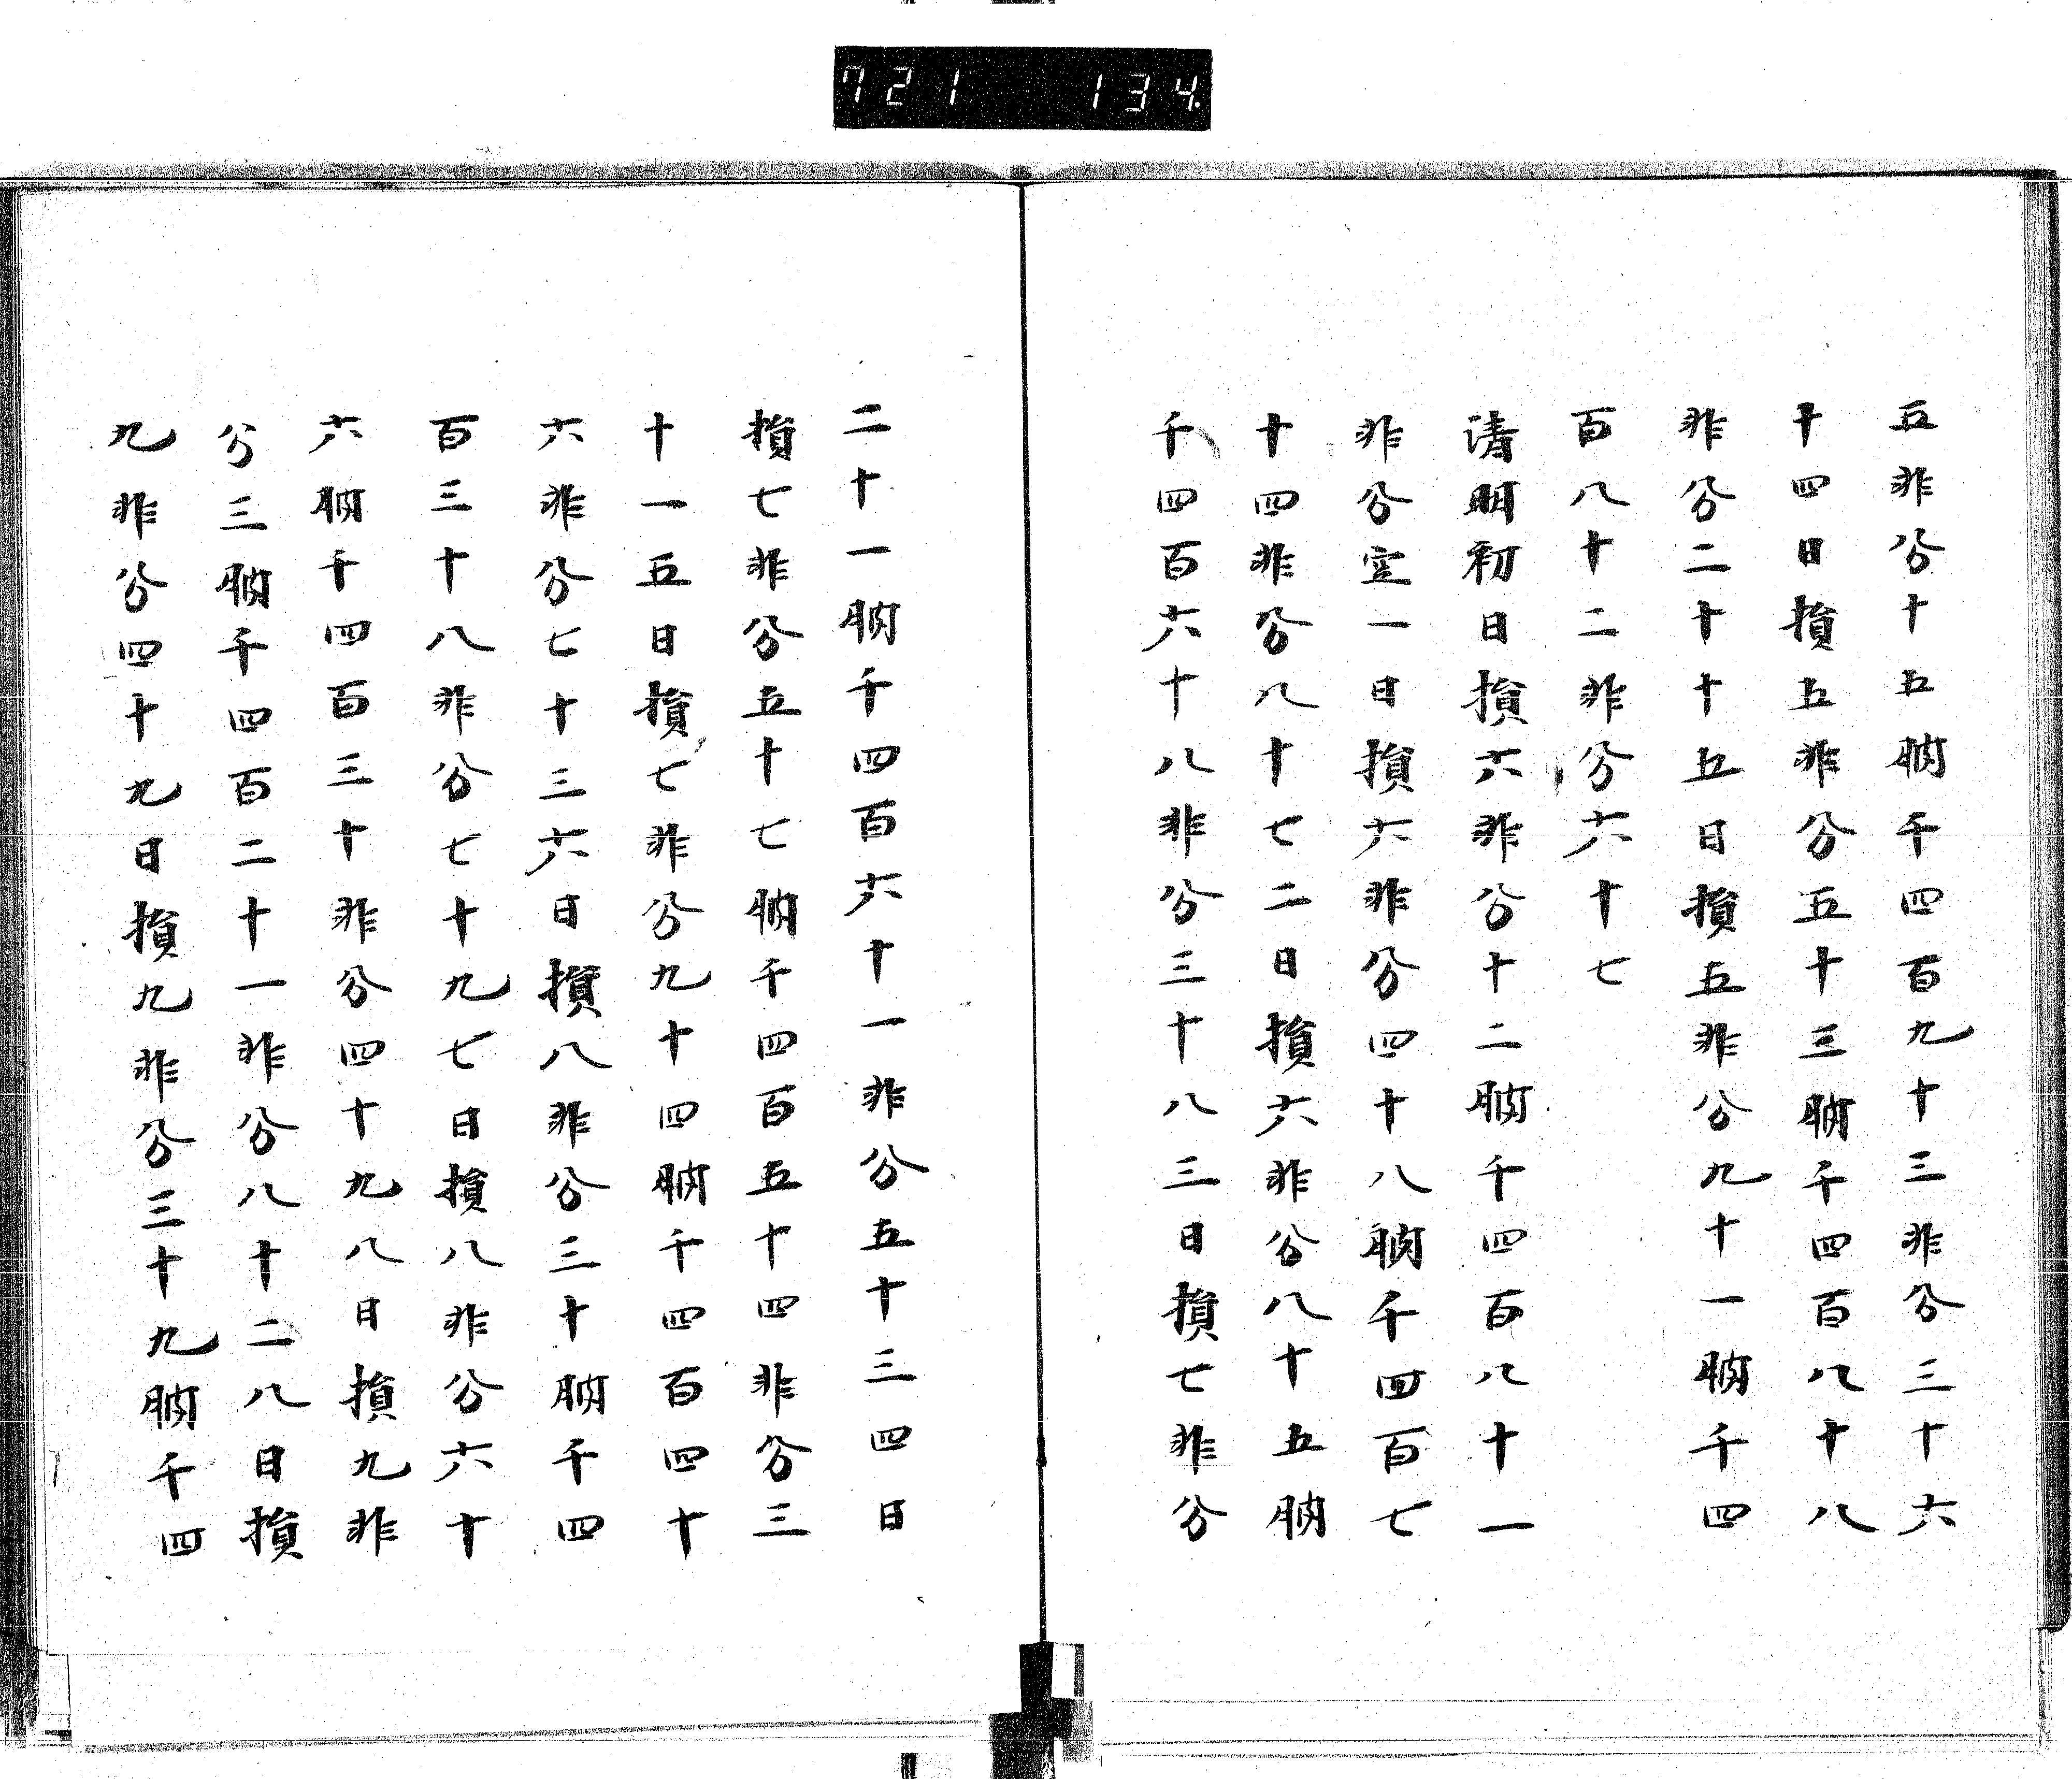 721 134.
五非分十五朒千四百九十三非分三十六
十四日損五非分五十三朒千四百八十八
非分二十十五日損五非分九十一朒千四
百八十二非分六十七
清明初日損六非分十二朒千四百八十一
非分空一日損六非分四十八朒千四百七
十四非分八十七二日損六非分八十五朒
千四百六十八非分三十八三日損七非分
二十一朒千四百六十一非分五十三四日
損七非分五十七朒千四百五十四非分三
十一五日損七非分九十四朒千四百四十
六非分七十三六日損八非分三十朒千四
百三十八非分七十九七日損八非分六十
六朒千四百三十非分四十九八日損九非
分三朒千四百二十一非分八十二八日損
九非分四十九日損九非分三十九朒千四